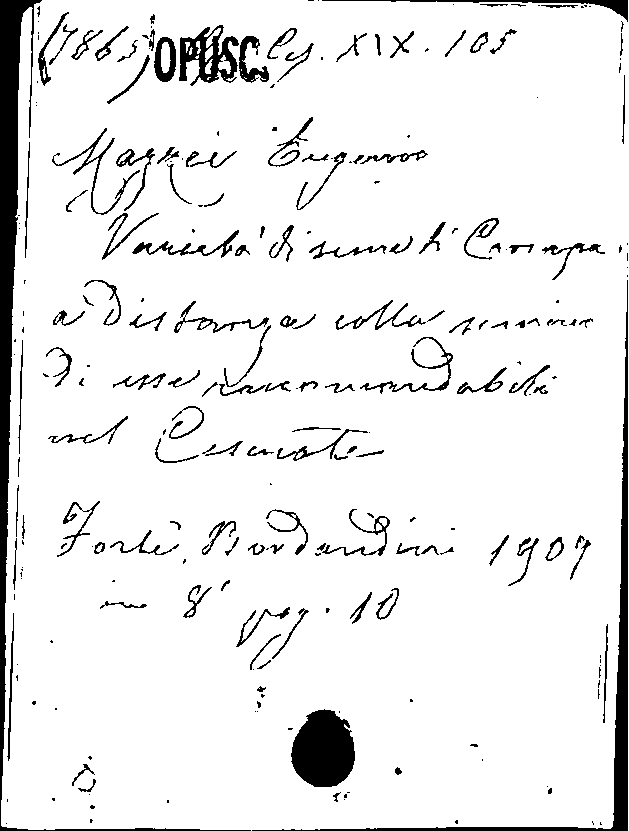 (7865) OPUSC. Ces. XIX. 105
Mazzei Eugenio
Varietà di seme di Canapa
a distanza colla semina
di esse raccomandabili
nel Cesenate
Forlì, Bordandini 1907
in 8° pag. 10